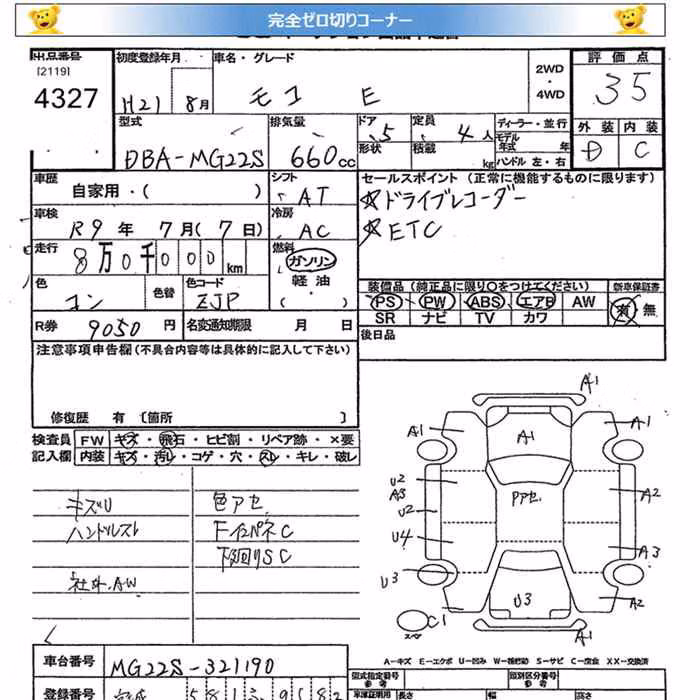 完全ゼロ切りコーナー
出品番号
[2119]
4327
初度登録年月
H21 8月
車名・グレード
モコ E
2WD
・
4WD
評価点
35
外装 内装
D C
型式
DBA-MG22S
排気量
660cc
ドア 5
形状
定員 4人
積載 kg
ディーラー・並行
モデル
年式 年
ハンドル 左・右
車歴
自家用・( )
シフト
AT
車検
R9年 7月(7日)
冷房
AC
走行
8万0千000km
燃料
ガソリン
軽油
( )
色
コン
色替
色コード
ZJP
R券 9050円
名変通知期限 月 日
セールスポイント (正常に機能するものに限ります)
☆ドライブレコーダー
☆ETC
装備品 (純正品に限り○をつけてください)
新車保証書
PS PW ABS エアB AW
SR ナビ TV カワ
有・無
後日品
注意事項申告欄(不具合内容等は具体的に記入して下さい)
修復歴 有 〔箇所 〕
検査員
記入欄
FW キズ・飛石・ヒビ割・リペア跡・×要
内装 キズ・汚レ・コゲ・穴・スレ・キレ・破レ
キズU
ハンドルスレ
社外.AW
色アセ
FインパネC
下廻りSC
A1
A1
A1
A1
U2
A3
U2
U4
U3
Pアセ
A2
A3
U3
A2
C1
スペア
A1
A-キズ E-エクボ U-凹み W-補修跡 S-サビ C-腐食 XX-交換済
車台番号
MG22S-321190
登録番号
型式指定番号
参考
類別区分番号
参考
長さ
幅
高さ